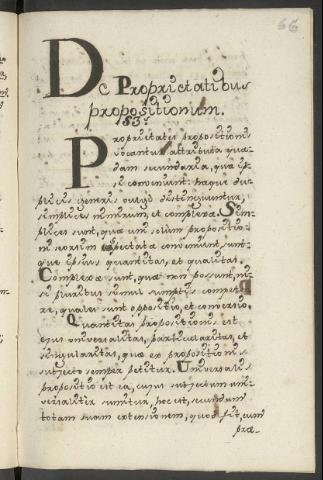 66
De Proprietatibus
propositionum.
§3º
Proprietates propositionis
vocantur attributa quæ-
dam secundaria, quæ ip-
si conveniunt: hæque du-
plicis generis distinguuntur,
simplices nimirum, et complexæ. Sim-
plices sunt, quæ uni solum propositio-
ni seorsim spectatæ conveniunt, sunt-
que ipsius quantitas, et qualitas.
Complexæ sunt, quæ non possunt, ni-
si pluribus simul sumptis compete-
re, quales sunt oppositio, et conversio.
Quantitas propositionis est
ejus universalitas, particularitas, et
singularitas, quæ ex propositionis
subjecto semper petitur. Universalis
propositio est ea, cujus subjectum uni-
versaliter sumitur, hoc est, secundum
totam suam extensionem, quod fit, cum
præ-